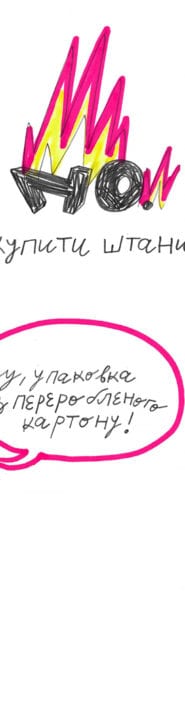 НО.
купити штани
у, упаковка
з переробленого
картону!